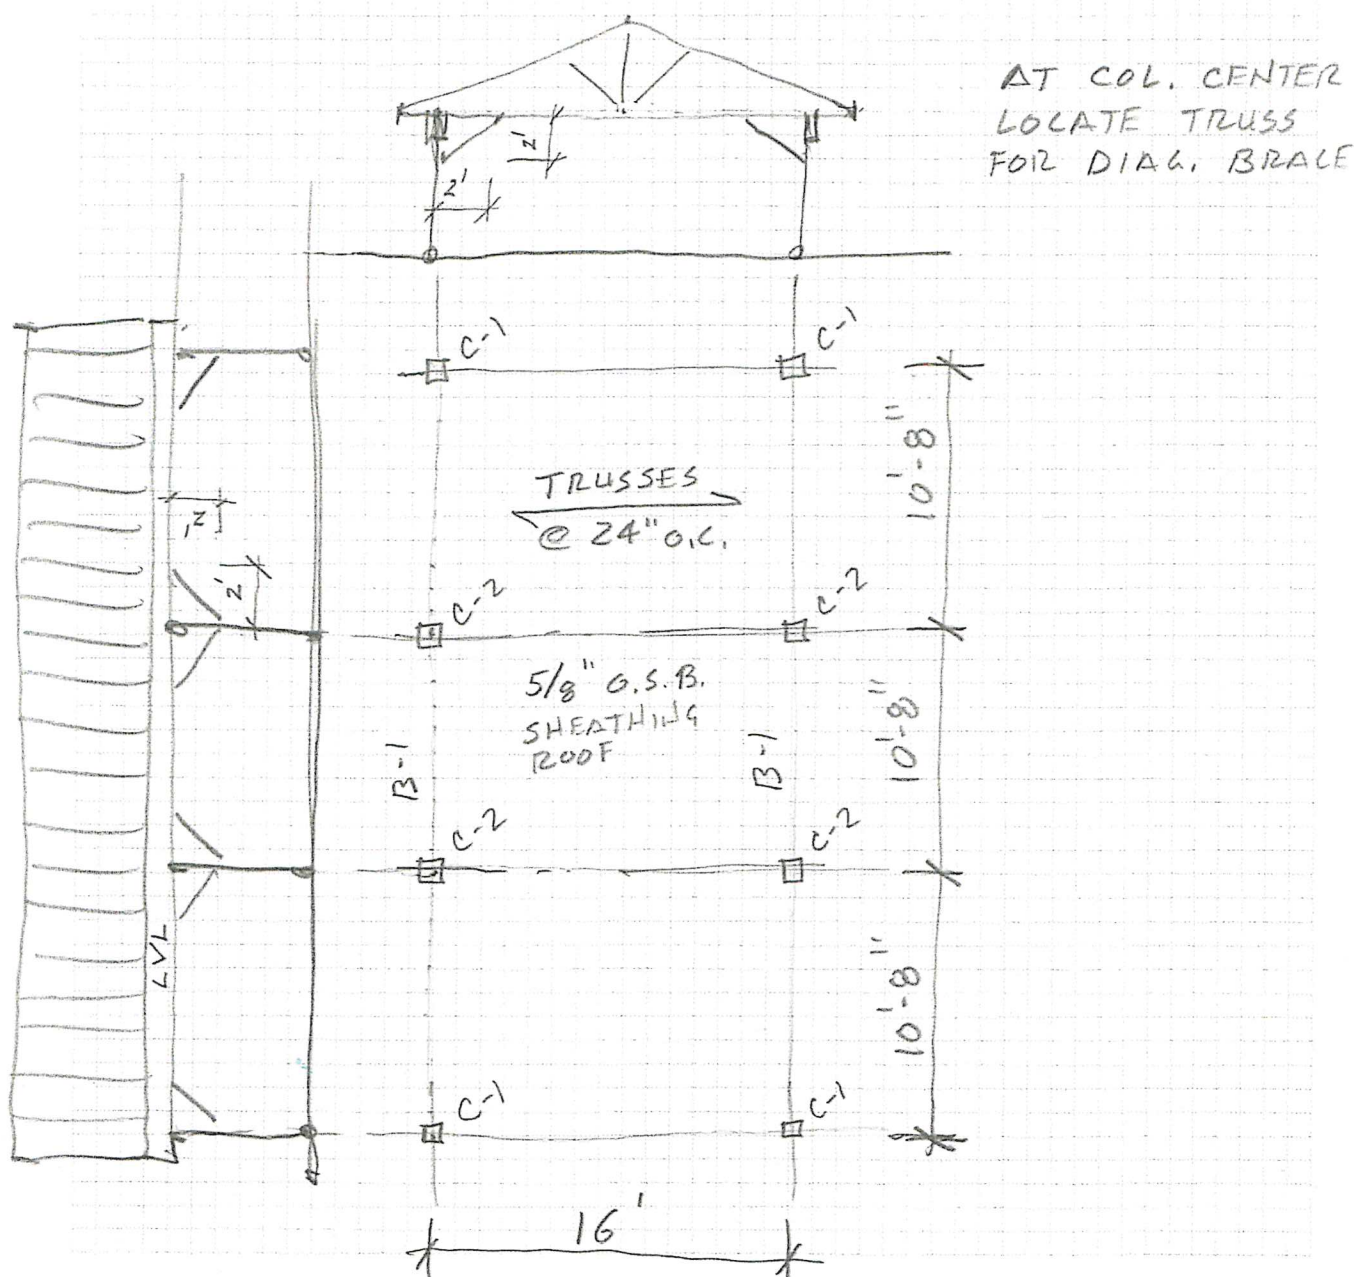 AT COL. CENTER
LOCATE TRUSS
FOR DIAG. BRACE
2'
2'
C-1
C-1
10'-8"
TRUSSES
@ 24" O.C.
2'
2'
C-2
C-2
5/8" O.S.B.
SHEATHING
ROOF
10'-8"
B-1
B-1
C-2
C-2
LVL
10'-8"
C-1
C-1
16'